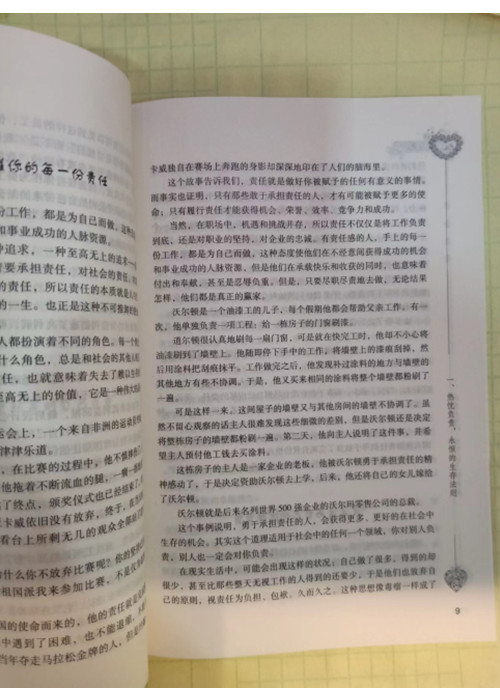 你的每一份责任
份工作,都是为自己而做,这种
和事业成功的人脉资源。
种追求,一种至高无上的追求
要承担责任,对社会的责任,
的责任,所以责任的本质就是
的一生。也正是这种不可推
人都扮演着不同的角色。每一个
什么角色,总是和社会的其他人
任,也就意味着失去了
至高无上的价值,它是一种伟大
运会上,一个来自非洲的运动员
津津乐道。
,在比赛的过程中,他不慎
他拖着不断流血的腿,一瘸一
了终点,颁奖仪式也已经结束了
卡威依旧没有放弃,终于,
看台上所剩无几的观众全部
什么你不放弃比赛呢?你的
祖国派我来参加比赛,不是仅
国的使命而来的,他的责任就是
中遇到了困难,也不能退缩,不
当年夺走马拉松金牌的人,但
卡威独自在赛场上奔跑的身影却深深地印在了人们的脑海里。
这个故事告诉我们,责任就是做好你被赋予的任何有意义的事情。
而事实也证明,只有那些敢于承担责任的人,才有可能被赋予更多的使
命;只有履行责任才能获得机会、荣誉、效率、竞争力和成功。
当然,在职场中,机遇和挑战并存,所以责任不仅仅是将工作负责
到底,还是对职业的坚持,对企业的忠诚。有责任感的人,手上的每一
份工作,都是为自己而做,这种态度使他们在不经意间获得成功的机会
和事业成功的人脉资源,但是他们在承载快乐和收获的同时,也意味着
付出和奉献,甚至是忍辱负重。但是,只要尽职尽责地去做,无论结果
怎样,他们都是真正的赢家。
沃尔顿是一个油漆工的儿子,每个假期他都会帮助父亲工作,有一
次,他单独负责一项工程:给一栋房子的门窗刷漆。
道尔顿很认真地刷每一扇门窗,可是就在快完工时,他却不小心将
油漆刷到了墙壁上。他随即停下手中的工作,将墙壁上的漆痕刮掉,然
后用涂料把刮痕抹平,工作做完之后,他发现补过涂料的地方与墙壁的
其他地方有些不协调。于是,他又买来相同的涂料将整个墙壁都粉刷了
一遍。
可是这样一来,这间屋子的墙壁又与其他房间的墙壁不协调了。虽
然不留心观察的话主人很难发现这些细微的差别,但是沃尔顿还是决定
将整栋房子的墙壁都粉刷一遍。第二天,他向主人说明了这件事,并希
望主人预付他工钱去买涂料。
这栋房子的主人是一家企业的老板,他被沃尔顿勇于承担责任的精
神感动了,于是决定资助沃尔顿去上学,后来,他还将自己的女儿嫁给
了沃尔顿。
沃尔顿就是后来名列世界500强企业的沃尔玛零售公司的总裁。
这个事例说明,勇于承担责任的人,会获得更多、更好的在社会中
生存的机会,其实这个道理适用于社会中的任何一个领域,你对别人负
责,别人也一定会对你负责。
在现实生活中,可能会出现这样的状况:自己做了很多,得到的却
很少,甚至比那些整天无视工作的人得到的还要少,于是他们也放弃自
己的原则,视责任为负担、包袱。久而久之,这种思想像毒瘤一样成了
一、担优负责,永恒的生存法则
9